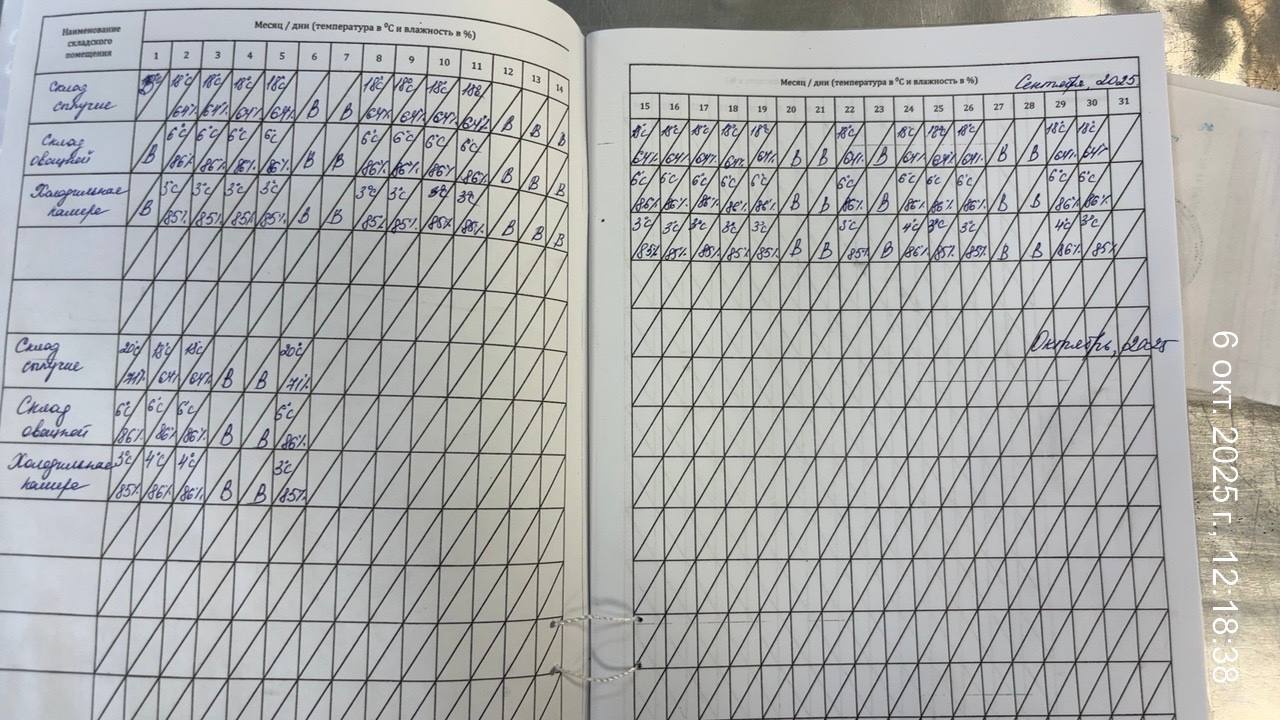 Наименование складского помещения
Месяц / дни (температура в ⁰С и влажность в %)
1 2 3 4 5 6 7 8 9 10 11 12 13 14
Склад сыпучие
18°с 18°с 18°с 18°с 18°с 18°с 18°с 18°с
64% 64% 64% 64% В В 64% 64% 64% 64% В В В
Склад овощной
6°с 6°с 6°с 6с 6°с 6°с 6°с 6°с
В 86% 86% 86% 86% В В 86% 86% 86% 86% В В В
Холодильная камера
3°с 3°с 3°с 3°с 3°с 3°с 3°с 3с
В 85% 85% 85% 85% В В 85% 85% 85% 85% В В В
Склад сыпучие
20°с 18°с 18°с 20°с
71% 64% 64% В В 71%
Склад овощной
6°с 6°с 6°с 5°с
86% 86% 86% В В 86%
Холодильная камера
3°с 4°с 4°с 3°с
85% 86% 86% В В 85%
Месяц / дни (температура в ⁰С и влажность в %)
Сентябрь, 2025
15 16 17 18 19 20 21 22 23 24 25 26 27 28 29 30 31
18°с 18°с 18°с 18°с 18°с 18°с 18°с 18°с 18°с 18°с 18°с
64% 64% 64% 64% 64% В В 64% В 64% 64% 64% В В 64% 64%
6°с 6°с 6°с 6°с 6°с 6°с 6°с 6°с 6°с 6°с 6°с
86% 86% 86% 86% 86% В В 86% В 86% 86% 86% В В 86% 86%
3°с 3°с 3°с 3°с 3°с 3°с 4°с 3°с 3°с 4°с 3°с
85% 85% 85% 85% 85% В В 85% В 86% 85% 85% В В 86% 85%
Октябрь, 2025
6 окт. 2025 г., 12:18:38